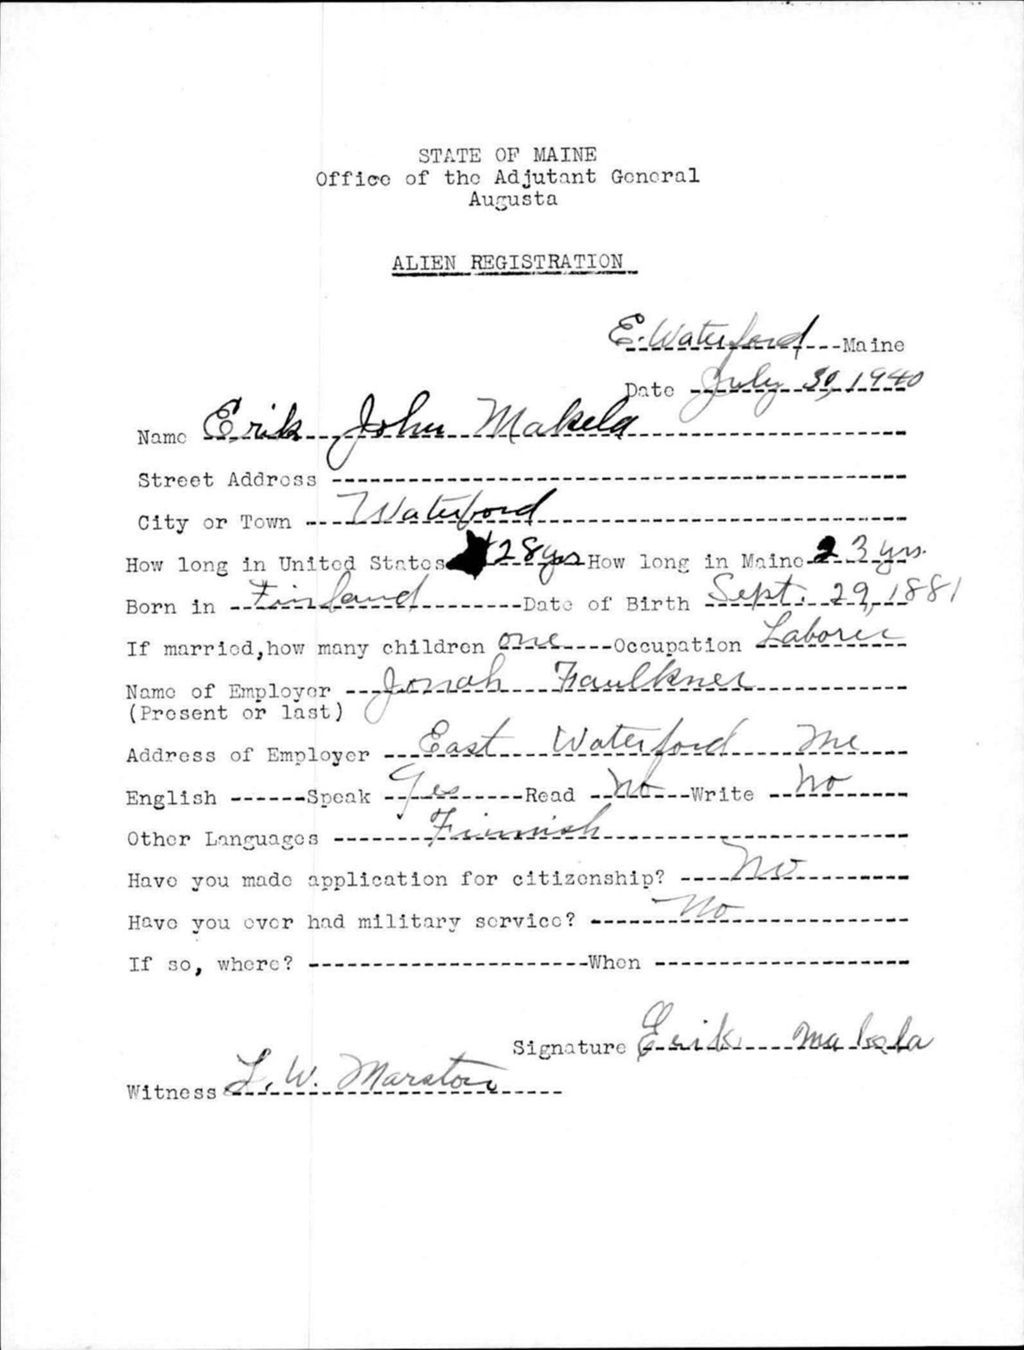 STATE OF MAINE
Office of the Adjutant General
Augusta
ALIEN REGISTRATION
E. Waterford, Maine
Date July 30, 1940
Name Erik John Makela
Street Address
City or Town Waterford
How long in United States 28 yrs How long in Maine 23 yrs.
Born in Finland Date of Birth Sept. 29, 1881
If married, how many children one Occupation Laborer
Name of Employer Jonah Faulkner
(Present or last)
Address of Employer East Waterford Me
English Speak Yes Read No Write No
Other Languages Finnish
Have you made application for citizenship? No
Have you ever had military service? No
If so, where? When
Signature Erik Makela
Witness L. W. Marston